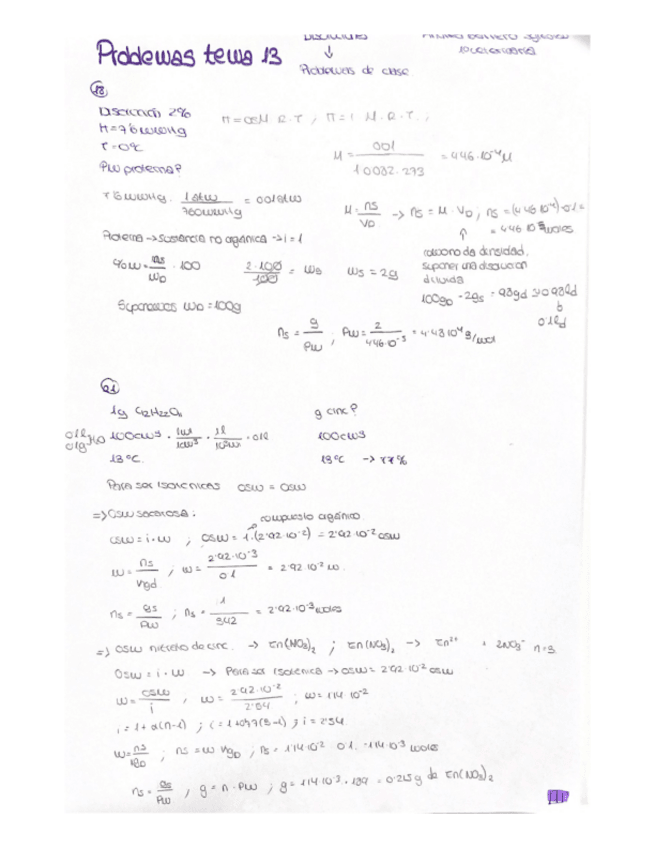 Problemas tema 13
Disoluciones
↓
Problemas de clase
18
Disolución 2%
π=7'6mmHg
T=0ºC
PM proteína?
π=osM·R·T; π=i·M·R·T;
M = 0'01 / 1·0'082·273 = 4'46·10⁻⁴M
7'6mmHg · 1atm / 760mmHg = 0'01atm
M = ns / VD → ns = M·VD; ns = (4'46·10⁻⁴)·0'1 =
= 4'46·10⁻⁵moles
Proteína → sustancia no orgánica → i = 1
%w = ms / wD · 100
2·100 / 100 = ws
ws = 2g
suponer una disolución
diluida
100gD - 2gs = 98gd → 0'98ld
0'1ld
Suponemos wD = 100g
ns = g / PM; PM = 2 / 4'46·10⁻⁵ = 4'48·10⁴g/mol
21
1g C12H22O11
g cinc?
0'1l H2O
0'1kg
100cm³
0'1l
100cm³
18ºC
18ºC → 77%
Para ser isotónicas osm = osm
⇒) Osm sacarosa:
compuesto orgánico
osm = i·m; osm = 1·(2'92·10⁻²) = 2'92·10⁻² osm
m = ns / kgd; m = 2'92·10⁻³ / 0'1 = 2'92·10⁻² m
ns = gs / PM; ns = 1 / 342 = 2'92·10⁻³moles
⇒) osm nitrato de cinc. → Zn(NO₃)₂; Zn(NO₃)₂ → Zn²⁺ + 2NO₃⁻ n=3
Osm = i·m → Para ser isotónica → osm = 2'92·10⁻² osm
m = osm / i, m = 2'92·10⁻² / 2'54; m = 1'14·10⁻²
i = 1+α(n-1); i = 1+0'77(3-1); i = 2'54
m = ns / kgD; ns = m·kgD; ns = 1'14·10⁻²·0'1 = 1'14·10⁻³ moles
ns = gs / PM, g = n·PM; g = 1'14·10⁻³·189 = 0'215g de Zn(NO₃)₂